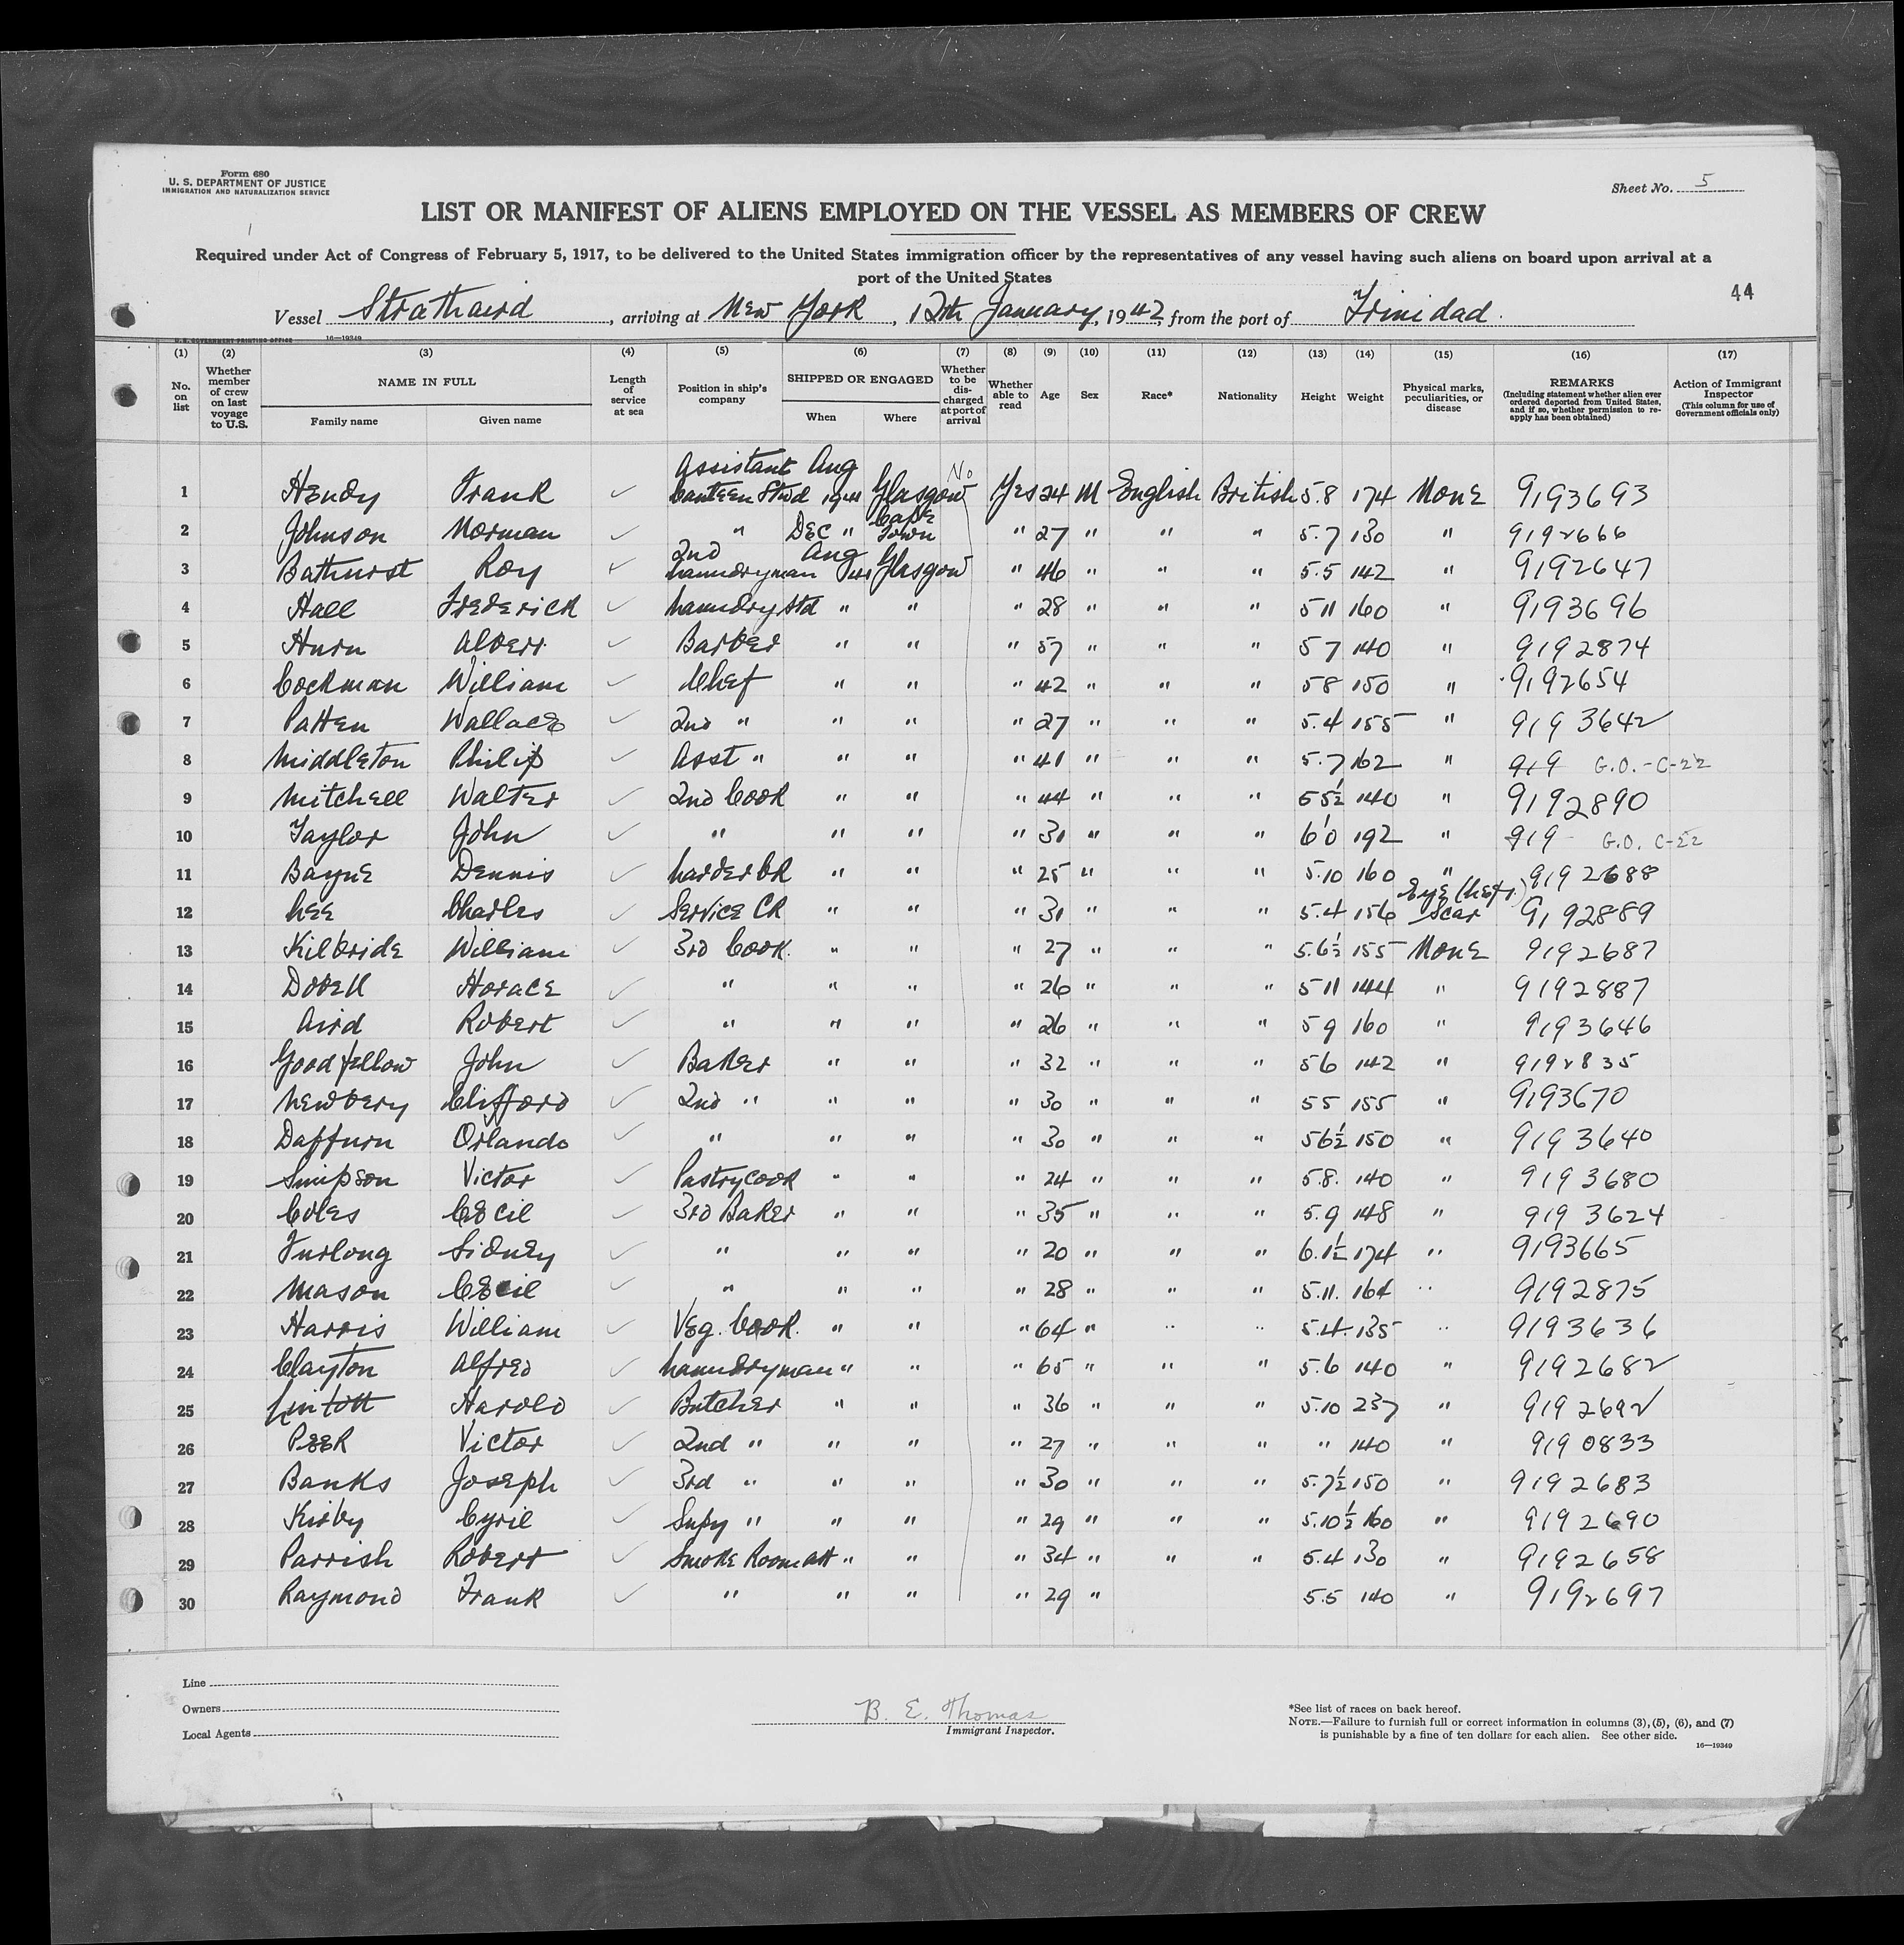 Form 680
U. S. DEPARTMENT OF JUSTICE
IMMIGRATION AND NATURALIZATION SERVICE
Sheet No. 5
LIST OR MANIFEST OF ALIENS EMPLOYED ON THE VESSEL AS MEMBERS OF CREW
Required under Act of Congress of February 5, 1917, to be delivered to the United States immigration officer by the representatives of any vessel having such aliens on board upon arrival at a
port of the United States
44
Vessel Strathaird, arriving at New York, 12th January, 1942, from the port of Trinidad.
U. S. GOVERNMENT PRINTING OFFICE 16—19349
(1) (2) (3) (4) (5) (6) (7) (8) (9) (10) (11) (12) (13) (14) (15) (16) (17)
No. on list
Whether member of crew on last voyage to U.S.
NAME IN FULL
Family name
Given name
Length of service at sea
Position in ship's company
SHIPPED OR ENGAGED
When
Where
Whether to be discharged at port of arrival
Whether able to read
Age
Sex
Race*
Nationality
Height
Weight
Physical marks, peculiarities, or disease
REMARKS
(Including statement whether alien ever ordered deported from United States, and if so, whether permission to reapply has been obtained)
Action of Immigrant Inspector
(This column for use of Government officials only)
1 Hendy Frank ✓ Assistant Canteen Stwd Aug 1941 Glasgow No Yes 24 M English British 5.8 174 None 9193693
2 Johnson Norman ✓ " Dec " Cape Town " 27 " " " 5.7 130 " 9192666
3 Bathurst Roy ✓ 2nd Laundryman Aug 1941 Glasgow " 46 " " " 5.5 142 " 9192647
4 Hall Frederick ✓ Laundry Std " " " 28 " " " 5 11 160 " 9193696
5 Hurn Albert ✓ Barber " " " 57 " " " 5 7 140 " 9192874
6 Cockman William ✓ Chef " " " 42 " " " 5 8 150 " 9192654
7 Patten Wallace ✓ 2nd " " " " 27 " " " 5.4 155 " 9193642
8 Middleton Philip ✓ Asst " " " " 41 " " " 5.7 162 " 919 G.O.-C-22
9 Mitchell Walter ✓ 2nd Cook " " " 44 " " " 5 5½ 140 " 9192890
10 Taylor John ✓ " " " " 31 " " " 6'0 192 " 919 G.O. C-22
11 Bayne Dennis ✓ Larder CK " " " 25 " " " 5.10 160 " 9192688
12 Lee Charles ✓ Service CK " " " 31 " " " 5.4 156 Eye (Left) Scar 9192889
13 Kilbride William ✓ 3rd Cook. " " " 27 " " " 5.6½ 155 None 9192687
14 Dobell Horace ✓ " " " " 26 " " " 5 11 144 " 9192887
15 Aird Robert ✓ " " " " 26 " " " 5 9 160 " 9193646
16 Goodfellow John ✓ Baker " " " 32 " " " 5 6 142 " 9192835
17 Newbery Clifford ✓ 2nd " " " " 30 " " " 5 5 155 " 9193670
18 Daffurn Orlando ✓ " " " " 30 " " " 5 6½ 150 " 9193640
19 Simpson Victor ✓ Pastrycook " " " 24 " " " 5.8. 140 " 9193680
20 Coles Cecil ✓ 3rd Baker " " " 35 " " " 5.9 148 " 9193624
21 Furlong Sidney ✓ " " " " 20 " " " 6.1½ 174 " 9193665
22 Mason Cecil ✓ " " " " 28 " " " 5.11. 164 " 9192875
23 Harris William ✓ Veg. Cook. " " " 64 " " " 5.4. 135 " 9193636
24 Clayton Alfred ✓ Laundryman " " " 65 " " " 5.6 140 " 9192682
25 Lintott Harold ✓ Butcher " " " 36 " " " 5.10 237 " 9192692
26 Peek Victor ✓ 2nd " " " " 27 " " " " 140 " 9190833
27 Banks Joseph ✓ 3rd " " " " 30 " " " 5.7½ 150 " 9192683
28 Kirby Cyril ✓ Supy " " " " 29 " " " 5.10½ 160 " 9192690
29 Parrish Robert ✓ Smoke Room att " " " 34 " " " 5.4 130 " 9192658
30 Raymond Frank ✓ " " " " 29 " 5.5 140 " 9192697
Line
Owners
Local Agents
B. E. Thomas
Immigrant Inspector.
*See list of races on back hereof.
NOTE.—Failure to furnish full or correct information in columns (3), (5), (6), and (7)
is punishable by a fine of ten dollars for each alien. See other side.
16—19349